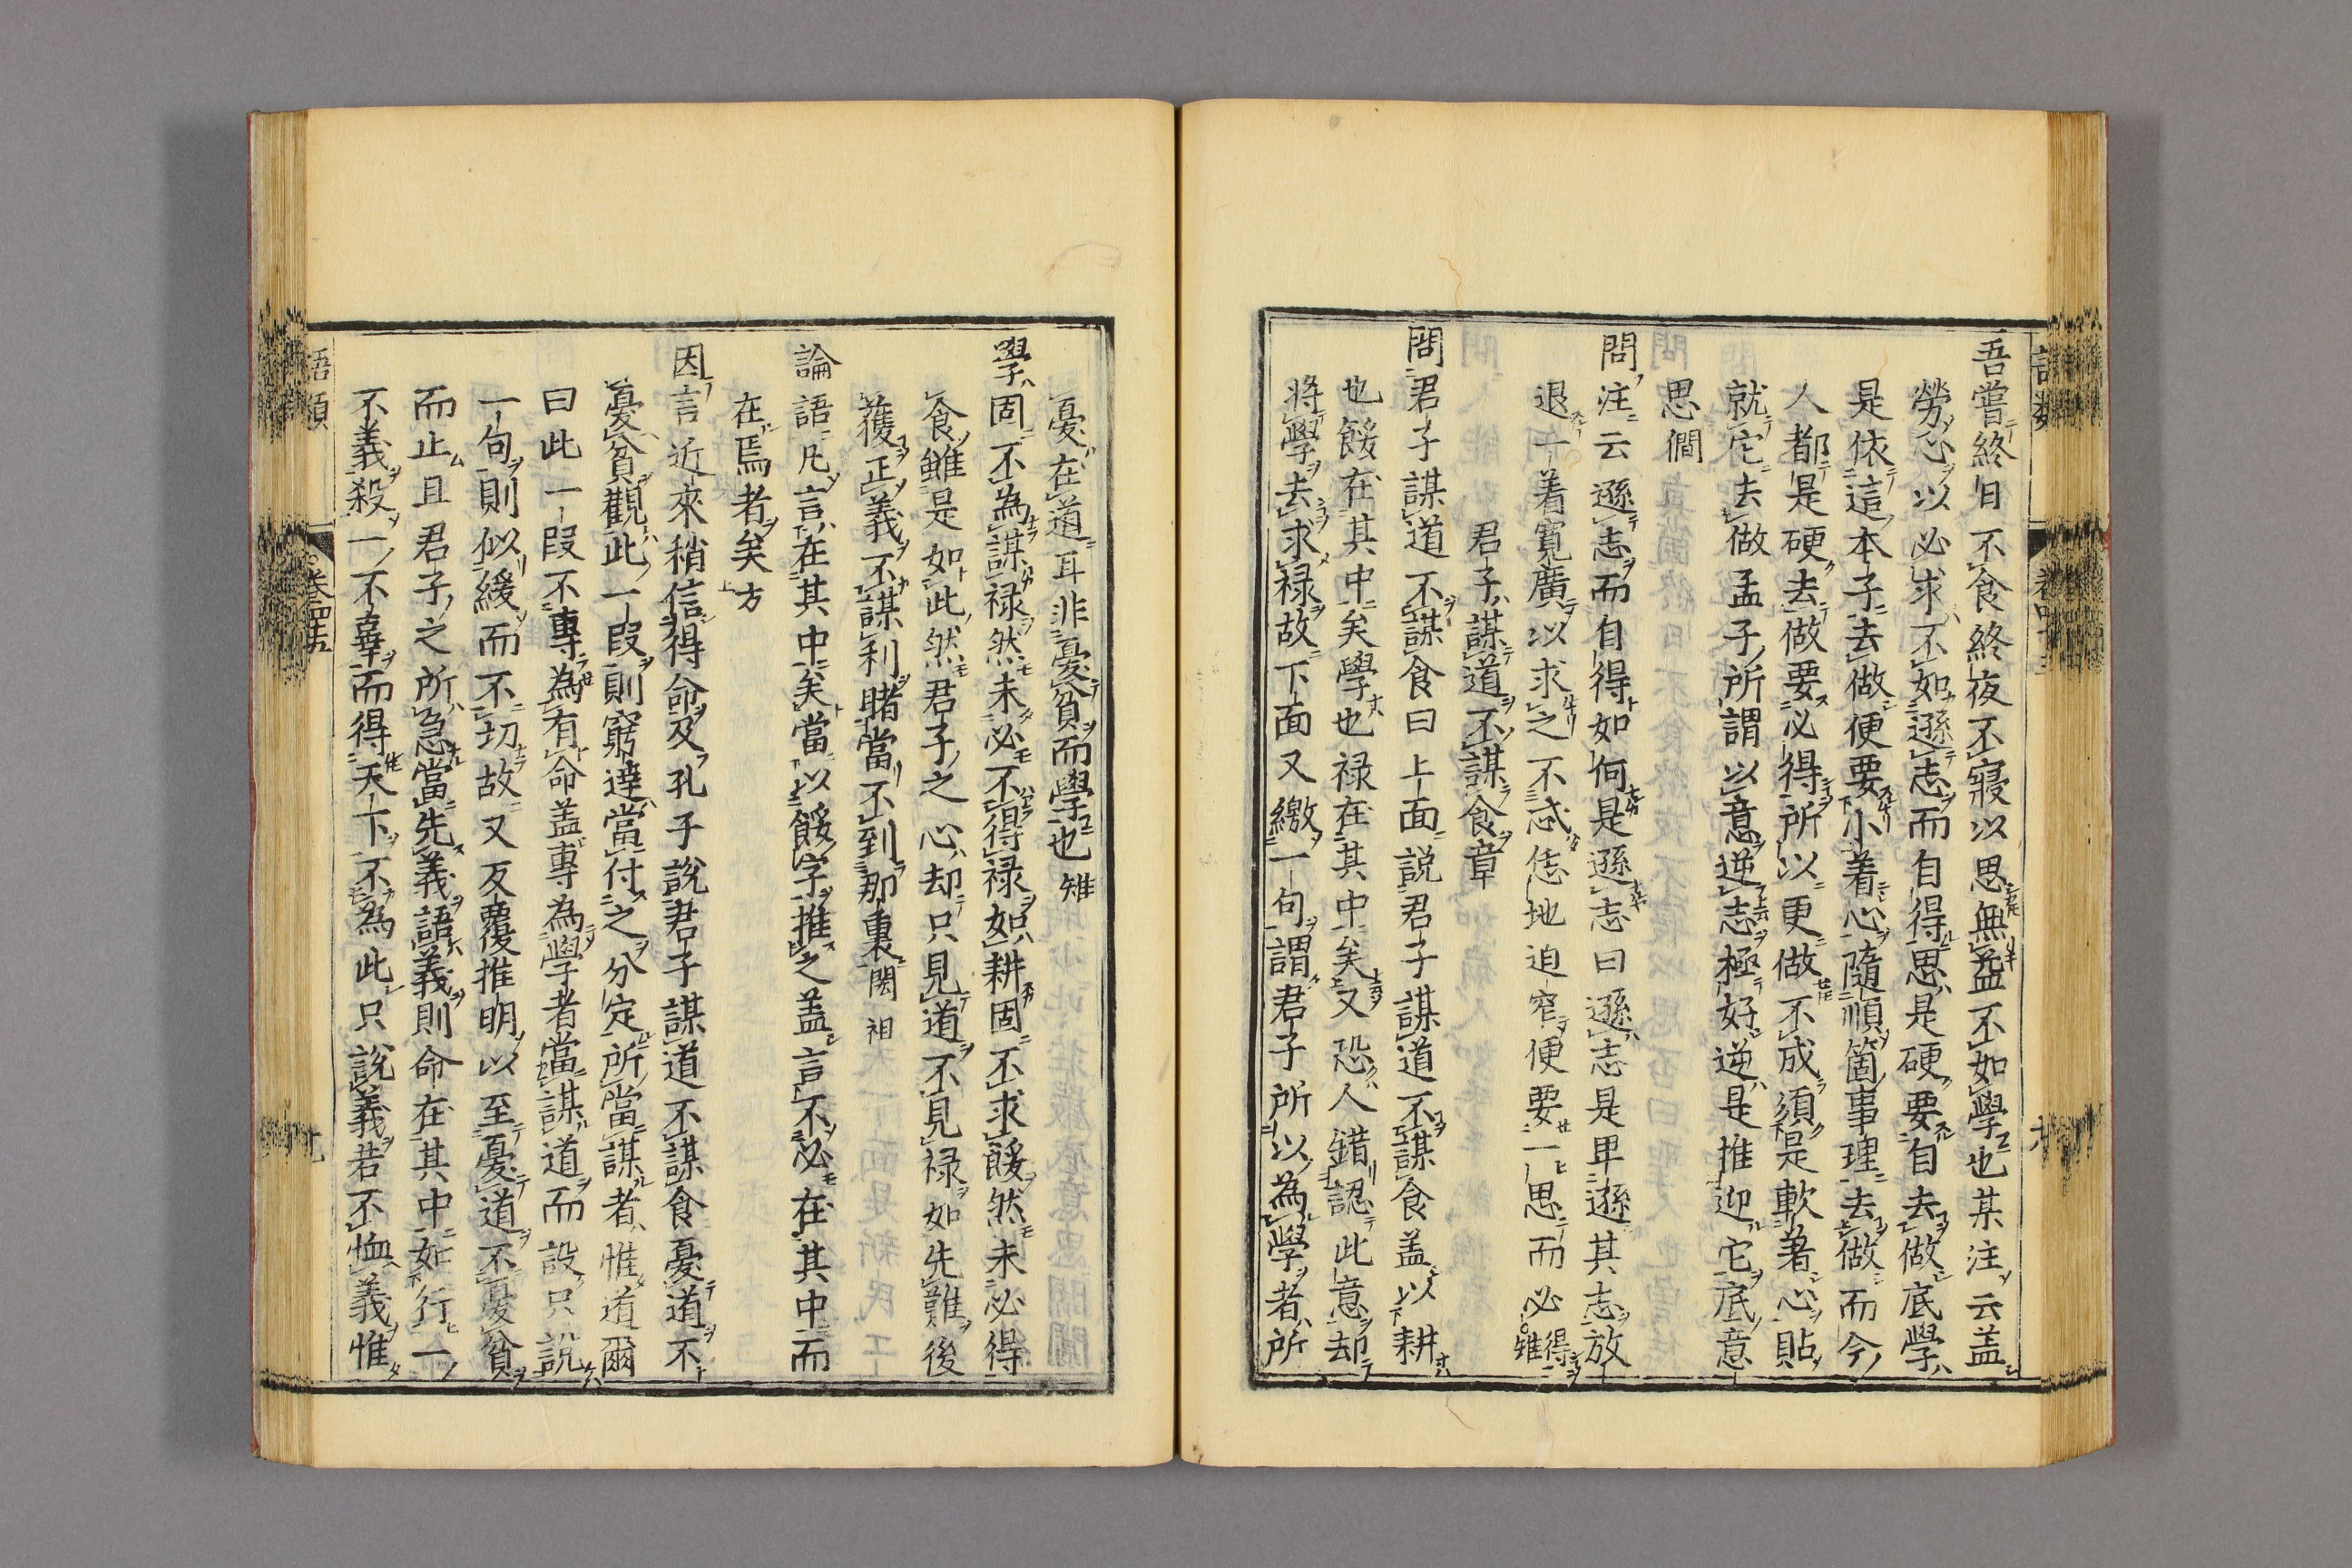 吾嘗終日不食終夜不寢以思無益不如學也某注云盖
勞心以必求不如遜志而自得思是硬要自去做底學
是依這本子去做便要小着心隨順箇事理去做而今
人都是硬去做要必得所以更做不成須是軟著心貼
就它去做孟子所謂以意逆志極好逆是推迎它底意
思僩
問注云遜志而自得如何是遜志曰遜志是卑遜其志放
退一着寬廣以求之不忒恁地迫窄便要一思而必得雉
君子謀道不謀食章
問君子謀道不謀食曰上面說君子謀道不謀食盖以耕
也餒在其中矣學也禄在其中矣又恐人錯認此意却
將學去求禄故下面又繳一句謂君子所以為學者所
憂在道耳非憂貧而學也雉
學固不為謀禄然未必不得禄如耕固不求餒然未必得
食雖是如此然君子之心却只見道不見禄如先難後
獲正義不謀利睹當不到那裏閎祖
論語凡言在其中矣當以餒字推之盖言不必在其中而
在焉者矣方
因言近來稍信得命及孔子說君子謀道不謀食憂道不
憂貧觀此一段則窮達當付之分定所當謀者惟道爾
曰此一段不專為有命盖專為學者當謀道而設只說
一句則似緩而不切故又反覆推明以至憂道不憂貧
而止且君子之所急當先義語義則命在其中如行一
不義殺一不辜而得天下不為此只說義若不恤義惟
語類
卷四十五